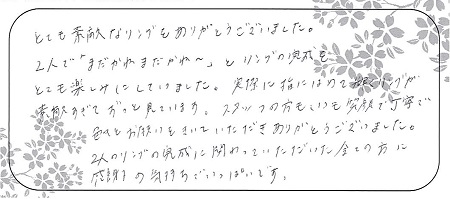 とても素敵なリングをありがとうございました。
2人で「まだかねまだかね〜」とリングの完成を
とても楽しみにしていました。実際に指にはめて輝くリングが
素敵すぎてずっと見ています。スタッフの方もいつも笑顔で丁寧で
色々とお願いもきいていただきありがとうございました。
2人のリングの完成に関わっていただいた全ての方に
感謝の気持ちでいっぱいです。